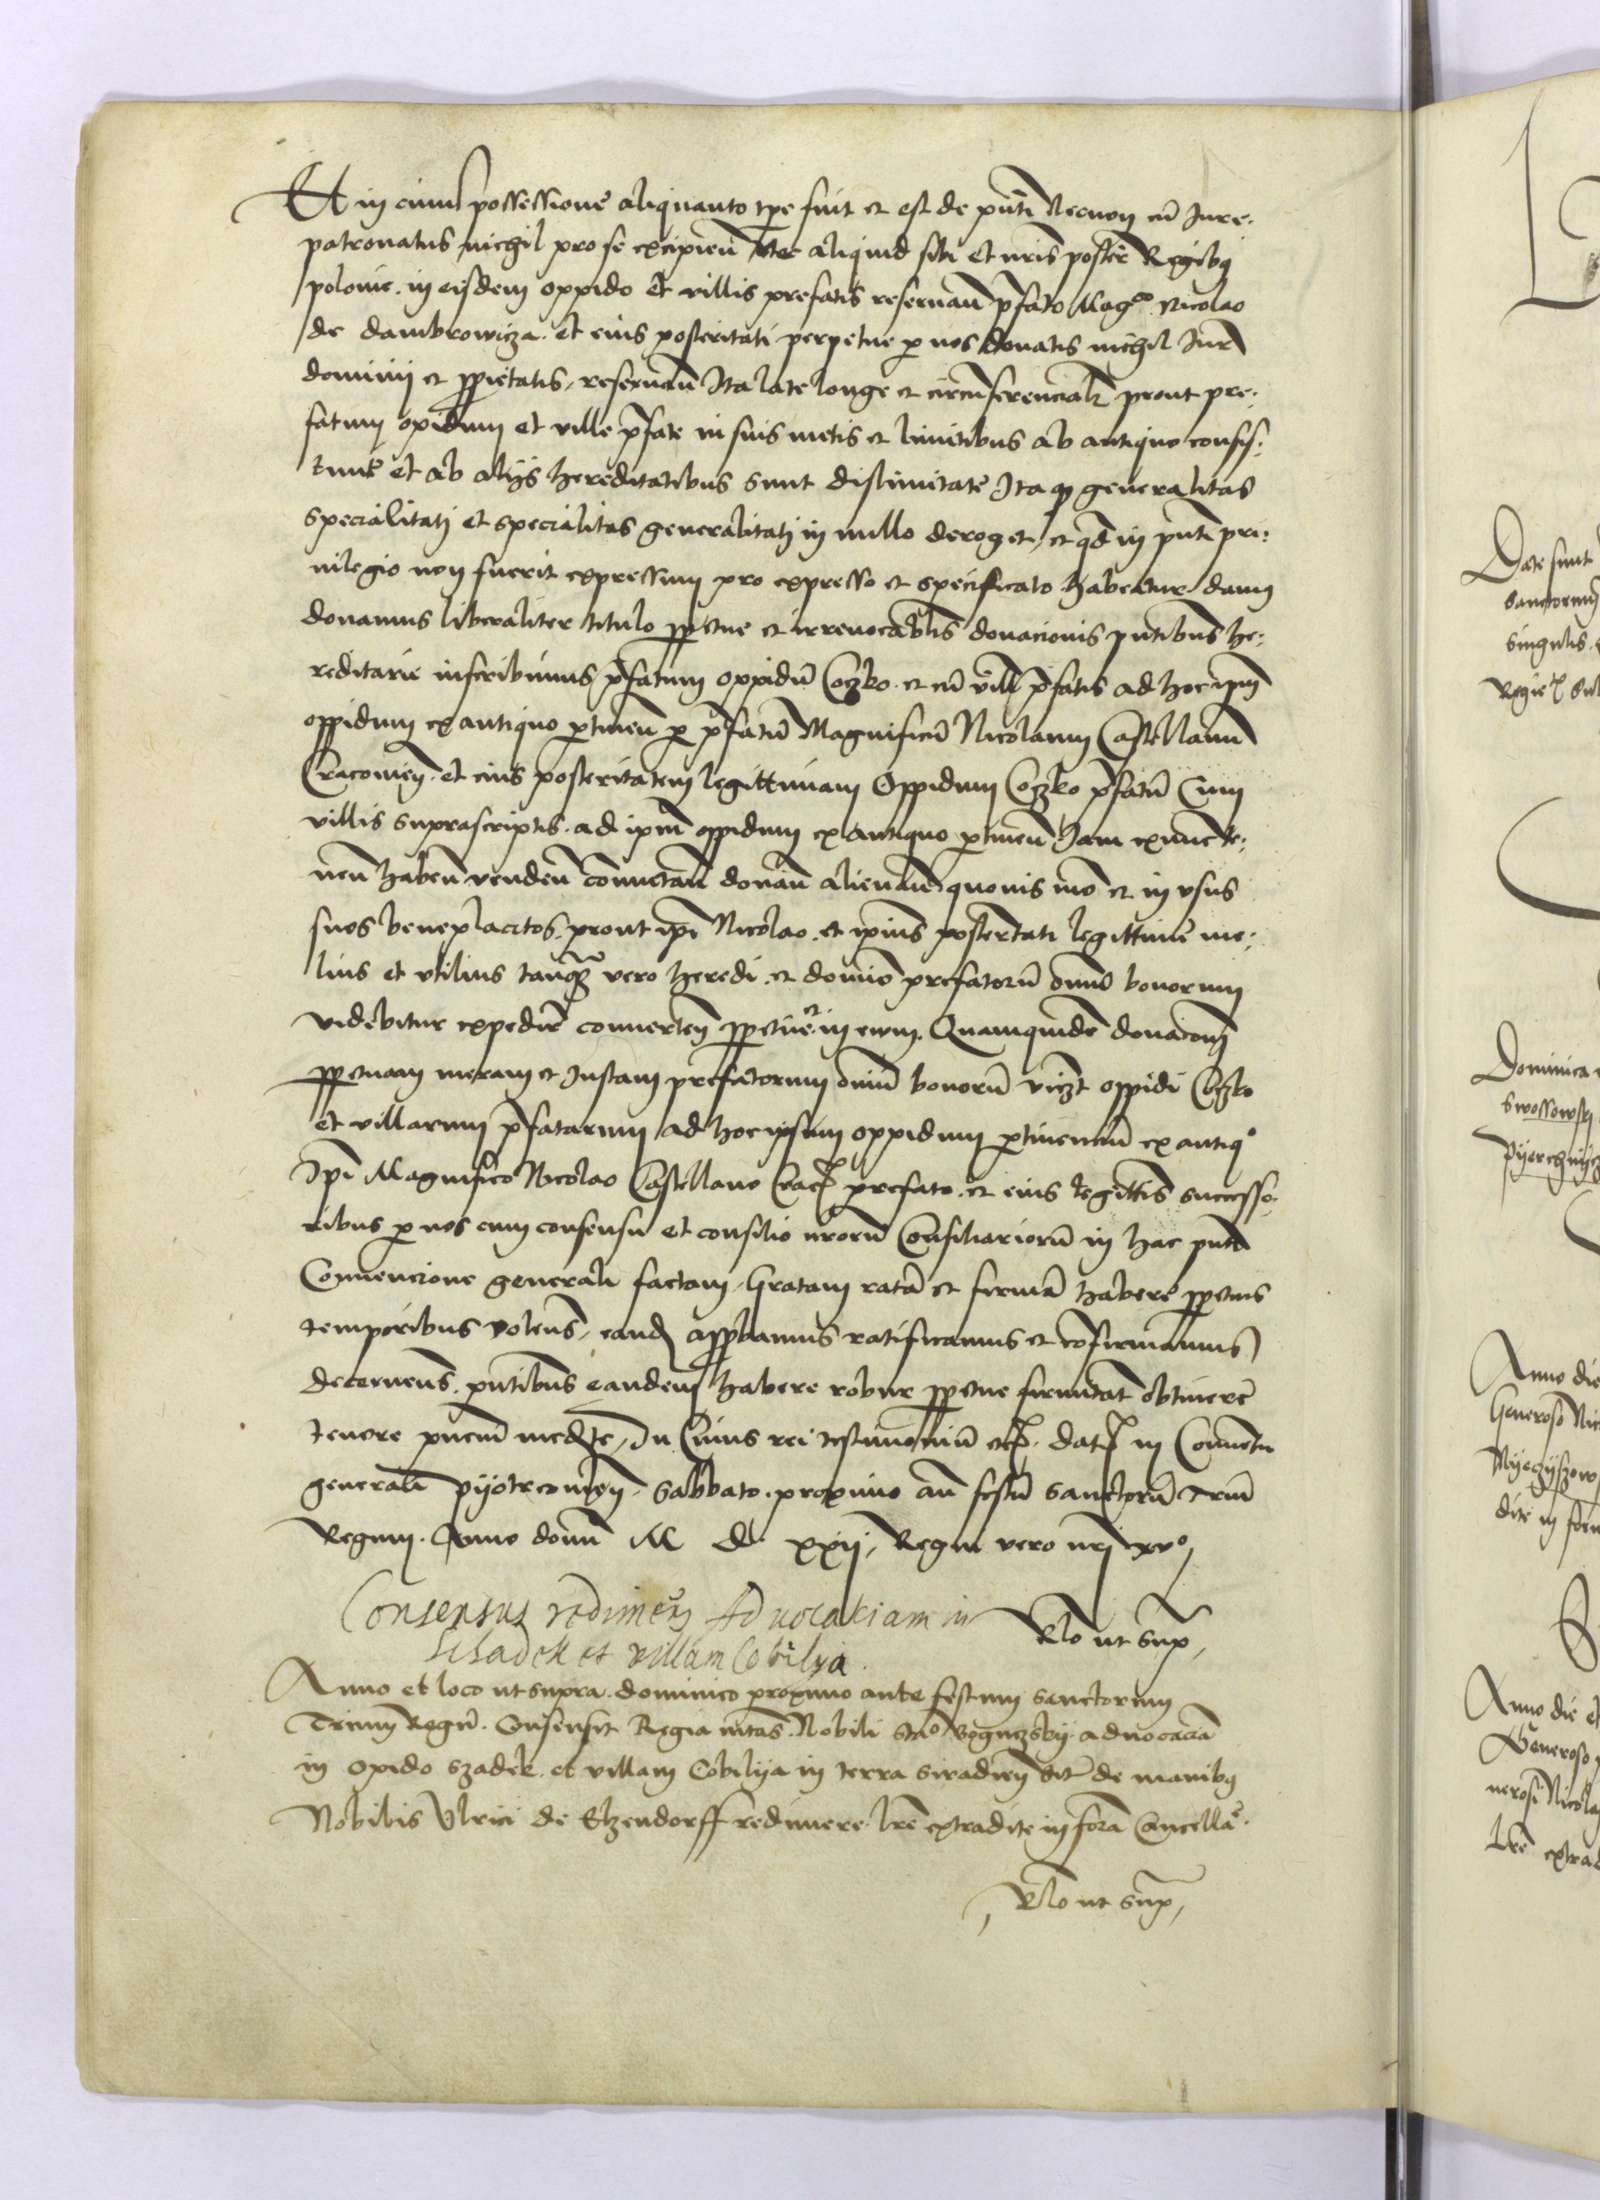 Et in cuius possessione aliquanto tpe fuit et est de pnti Necnon cu Iure
patronatus nichil pro se excipien Nec aliquid sibi et nris poster Regibq
polonie. in eisdem oppido et villis prefatis reseruan pfato Magco Nicolao
de dambrowicza. et eius posteritati perpetue p nos donatis nichil Iur
dominij et pprietatis, reseruan Ita late longe et circumferencialr prout pre:
fatum opidum et ville pfate in suis metis et limitibus ab antiquo consis:
tunt et ab alijs hereditatibus sunt dislimitate Ita qp generalitas
specialitatj et specialitas generalitatj in nullo deroget, et qd in pnti pri:
uilegio non fuerit expressum pro expresso et specificato habeatur dam
donamus liberaliter titulo ppetue et irreuocablis donacionis pntibus he:
reditarie inscribimus pfatum oppidu Coczko. et cu vill pfatis ad hoc ipm
oppidum ex antiquo ptinen p pfatu Magnificu Nicolaum Castellanu
Cracouien. et eius posteritatem legittimam Oppidum Coczko pfatu Cum
villis suprascriptis. ad ipm oppidum ex antiquo ptinen Iam exnunc te:
nen haben venden commutan donan alienan quouis mo et in vsus
suos beneplacitos, prout ipi Nicolao. et ipius posteritati legittime me:
lius et vtilius tanq vero heredi. et domino prefatoru omn bonorum
videbitur expedire conuerten ppetue et in ewm. Quamquidem donacom
ppetuam meram et Iustam prefatorum omniu bonoru viczt oppidi Coczko
et villarum pfatarum ad hoc ipsum oppidum ptinentiu ex antiqo
Ipi Magnifico Nicolao Castellano Crac prefato. et eius legittis successo:
ribus p nos cum consensu et consilio nroru Consiliarioru in hac pnti
Conuencione generali factam, Gratam rata et firma habere ppetuis
temporibus volens, eand approbamus ratificamus et cofirmamus
decernens. pntibus eandem habere robur ppetue firmitat obtinere
tenore pncm medte, In Cuius rei testimoniu etc. dat in Conuentu
generali pyotrcouien. Sabbato. proximo an festu sanctoru Triu
Regum. Anno domi M D xxij, Regni vero nri xvo,
Consensus redimen Aduocatiam in
Schadek et villam Cobilya.
Rlo ut sup,
Anno et loco ut supra. dominico proximo ante festum sanctorum
Trium Regu. Consensit Regia mtas. Nobili Stao Boguczskij. aduocacia
in opido Szadek. et villam Cobilija in terra siradien sit de manibq
Nobilis Vlrici de Elzendorff redimere lre extradite in fora Cancella.
Rlo ut sup,